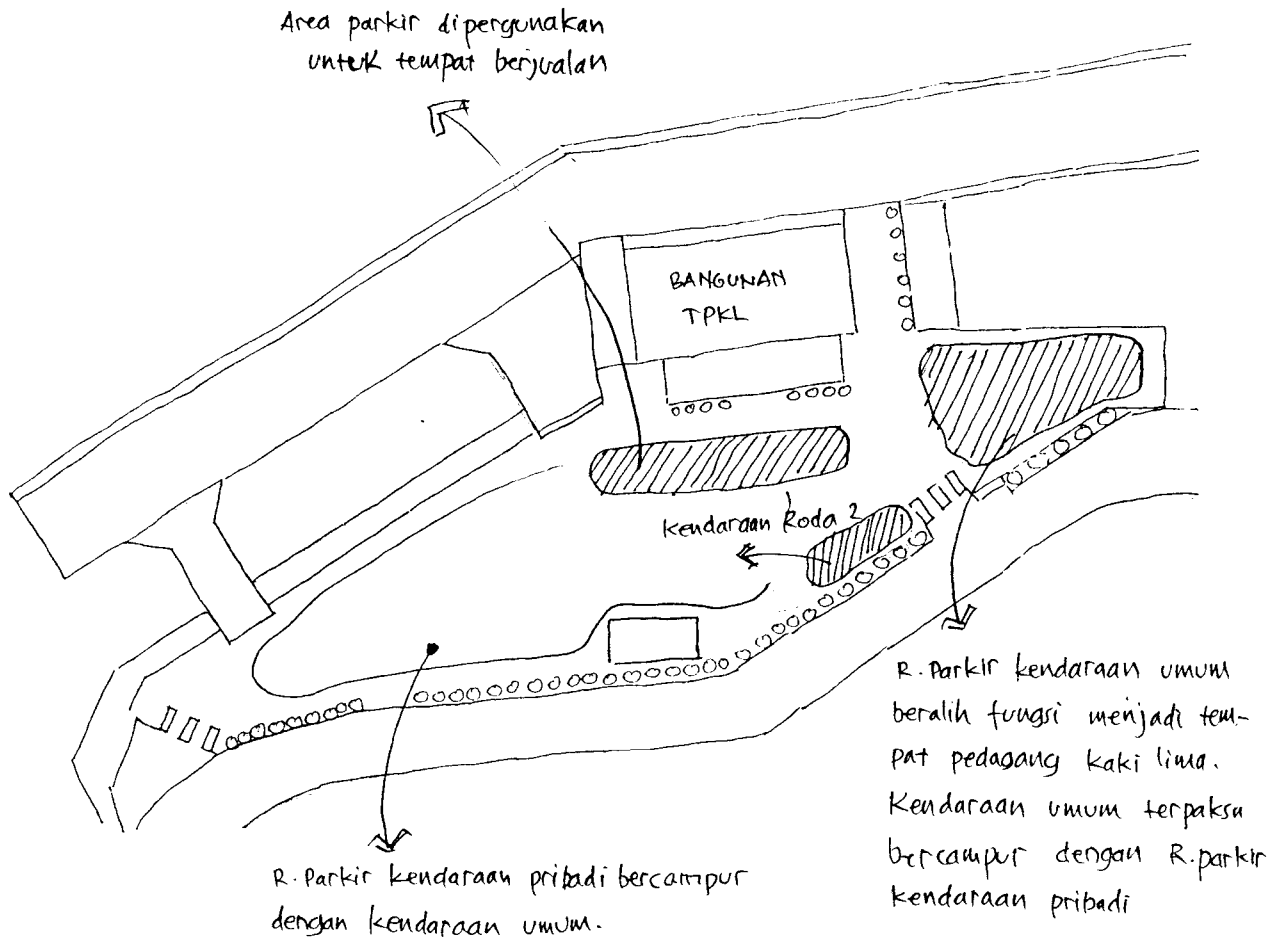 Area parkir dipergunakan
untuk tempat berjualan
BANGUNAN
TPKL
Kendaraan Roda 2
R. Parkir kendaraan umum
beralih fungsi menjadi tem-
pat pedagang kaki lima.
Kendaraan umum terpaksa
bercampur dengan R. parkir
kendaraan pribadi
R. Parkir kendaraan pribadi bercampur
dengan kendaraan umum.